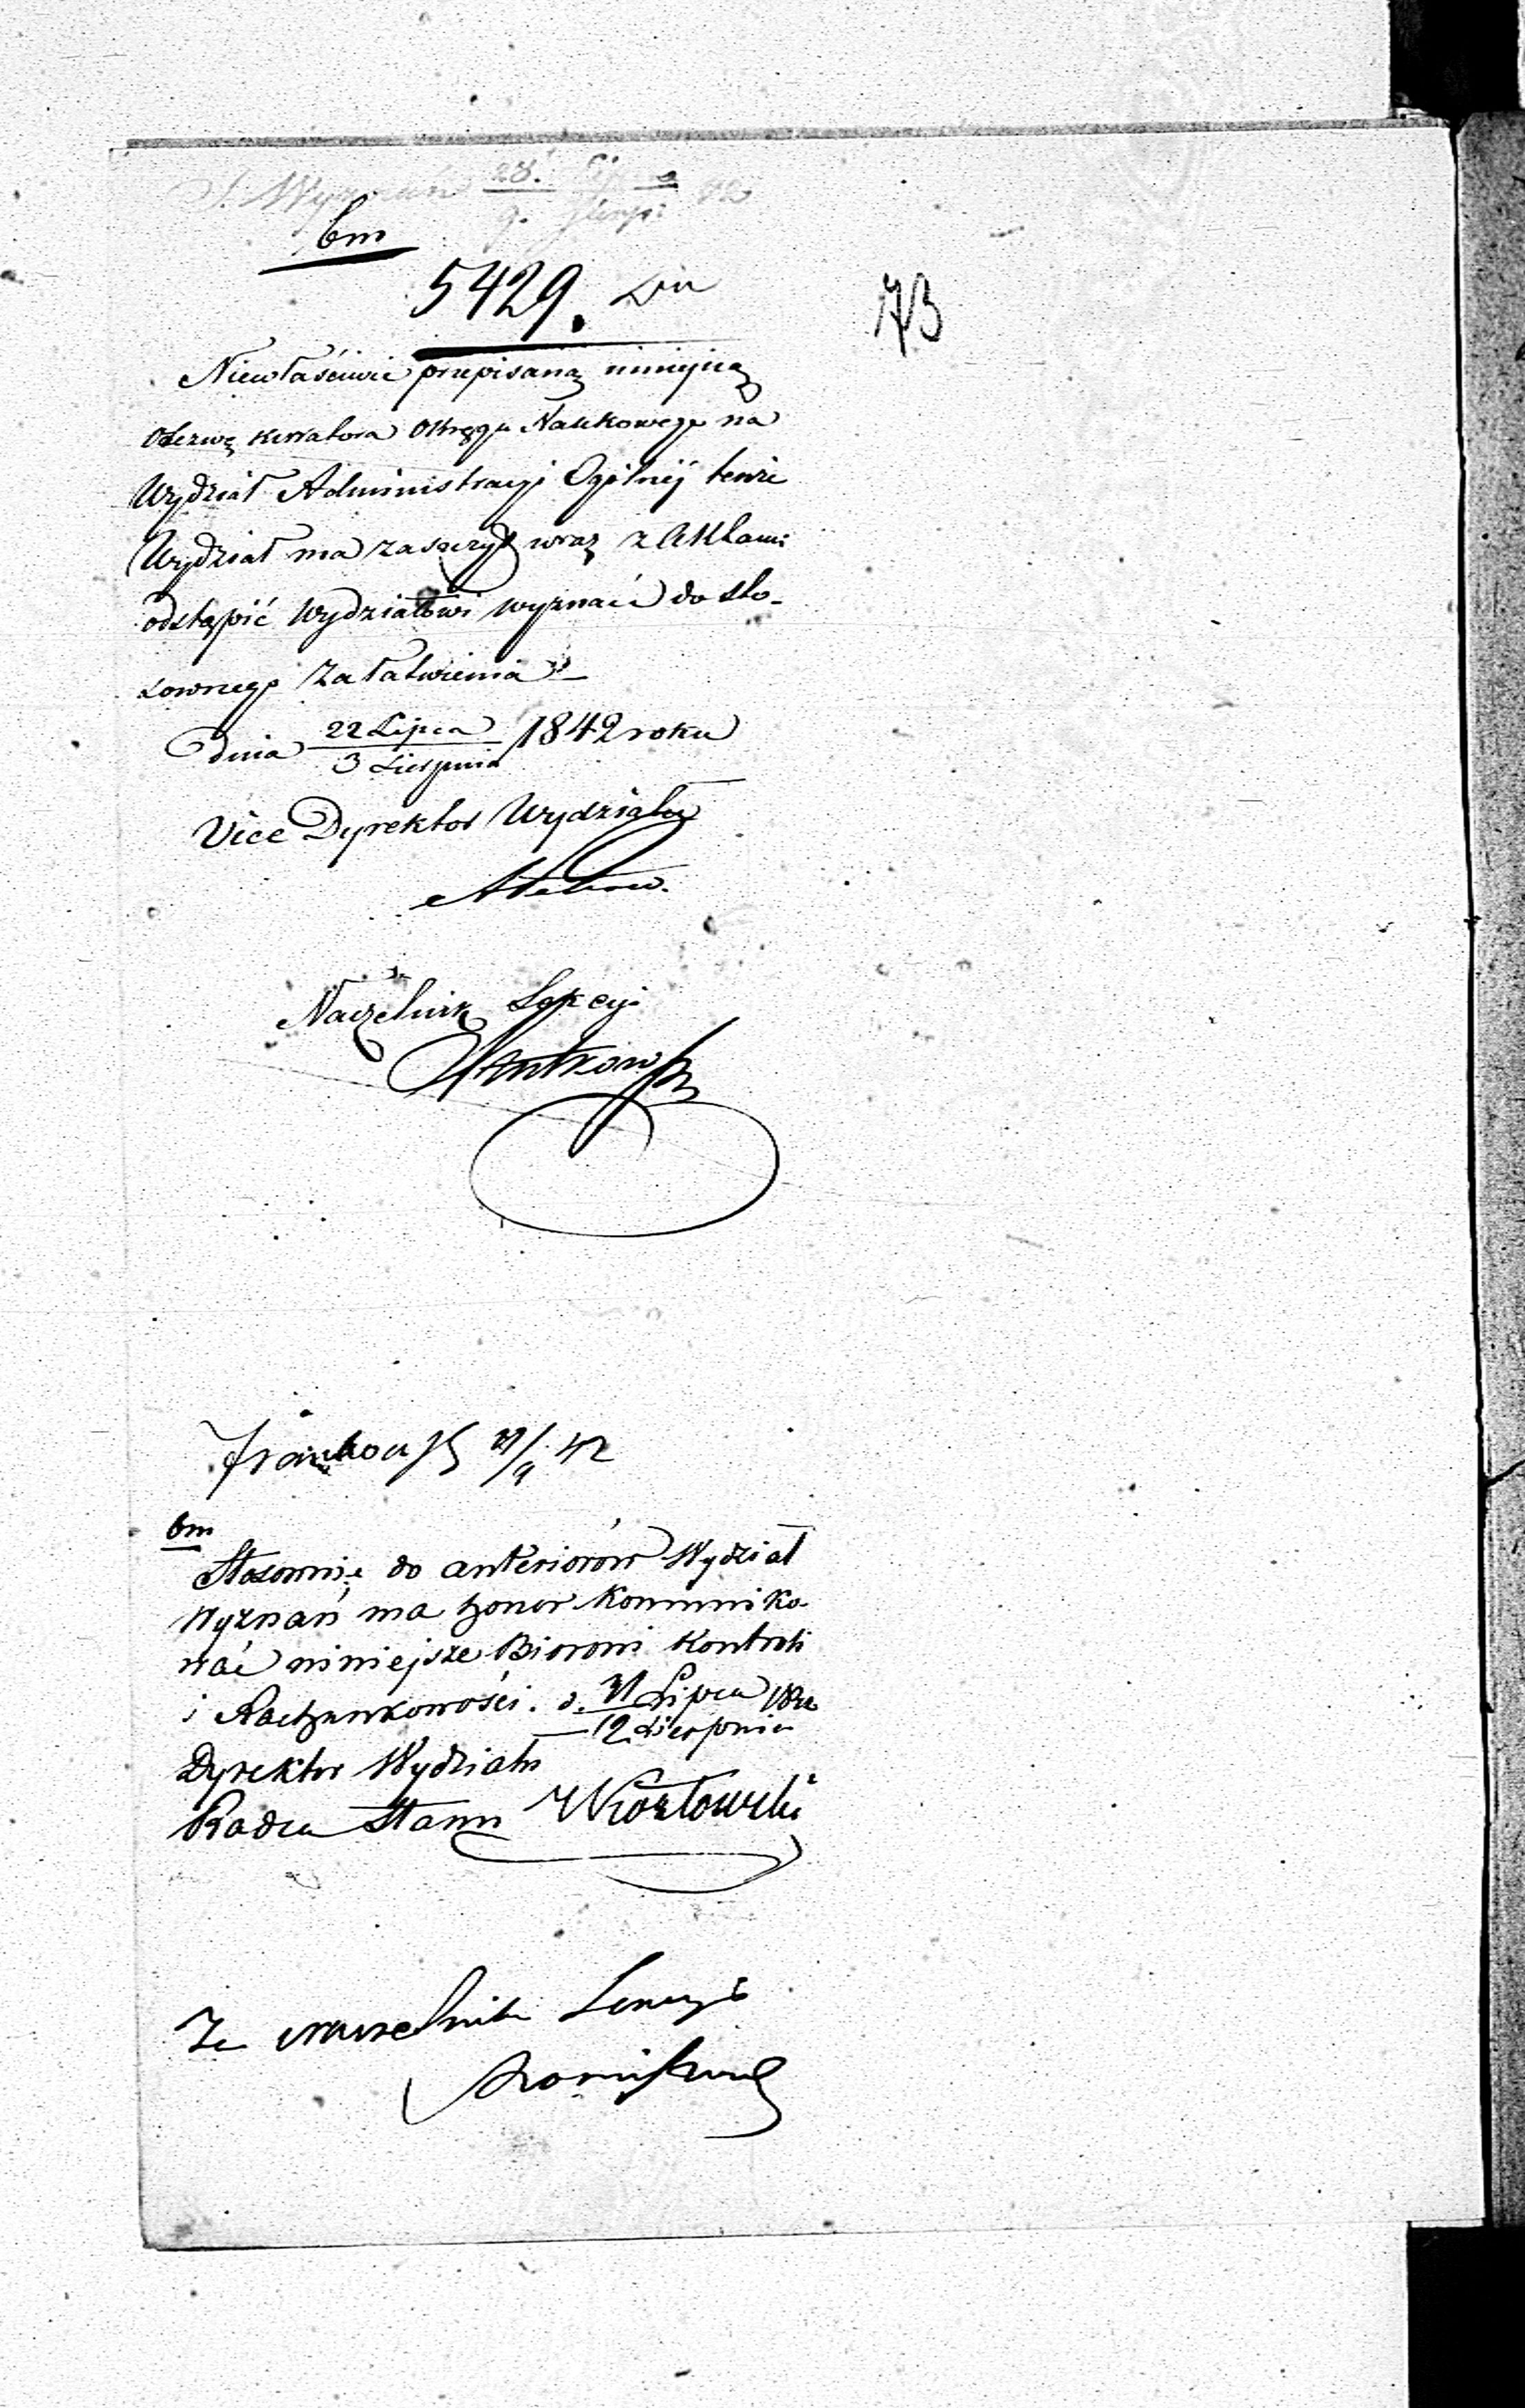 S. Wyznań 28. Lipca 42
9. Sierp:
bm
5429.
73
Niewłaściwie przepisaną niniejszą
Odezwę Kuratora Okręgu Naukowego na
Wydział Administracyi Ogólnéj tenże
Wydział ma zaszczyt wraz z Aktami
odstąpić Wydziałowi wyznań do sto-
sownego załatwienia
dnia 22 Lipca 1842 roku
3 Sierpnia
Vice Dyrektor Wydziału
Naczelnik Sekcyi
42
bm
Stosownie do anteriorów Wydział
Wyznań ma honor kommuniko-
wać niniejsze Biorowi Kontroli
i Rachunkowości. d. 31 Lipca 1842
12 Sierpnia
Dyrektor Wydziału
Radca Stanu Kozłowski
Za Naczelnika Sekcyi